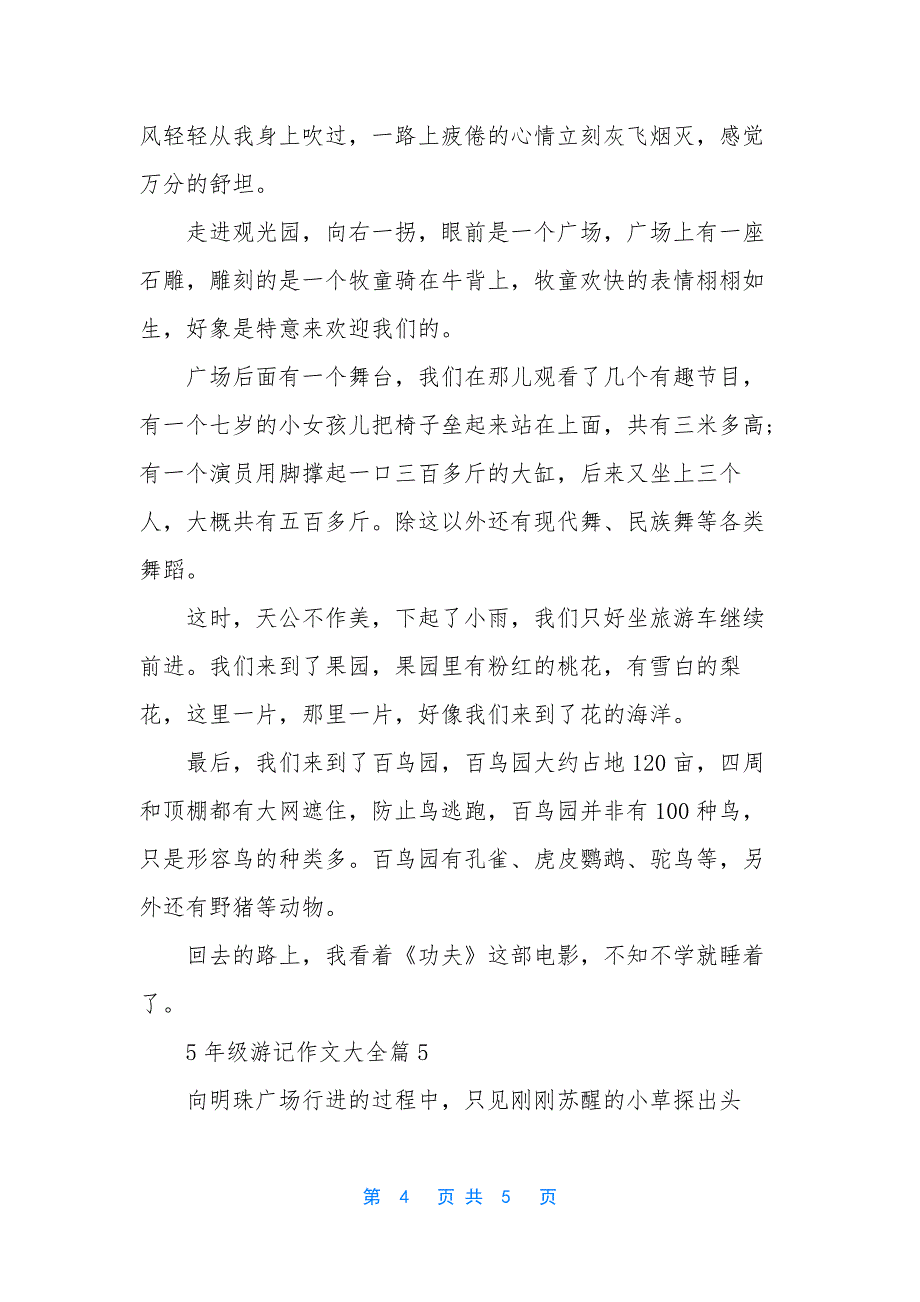 风轻轻从我身上吹过，一路上疲倦的心情立刻灰飞烟灭，感觉
万分的舒坦。
走进观光园，向右一拐，眼前是一个广场，广场上有一座
石雕，雕刻的是一个牧童骑在牛背上，牧童欢快的表情栩栩如
生，好象是特意来欢迎我们的。
广场后面有一个舞台，我们在那儿观看了几个有趣节目，
有一个七岁的小女孩儿把椅子垒起来站在上面，共有三米多高;
有一个演员用脚撑起一口三百多斤的大缸，后来又坐上三个
人，大概共有五百多斤。除这以外还有现代舞、民族舞等各类
舞蹈。
这时，天公不作美，下起了小雨，我们只好坐旅游车继续
前进。我们来到了果园，果园里有粉红的桃花，有雪白的梨
花，这里一片，那里一片，好像我们来到了花的海洋。
最后，我们来到了百鸟园，百鸟园大约占地 120 亩，四周
和顶棚都有大网遮住，防止鸟逃跑，百鸟园并非有 100 种鸟，
只是形容鸟的种类多。百鸟园有孔雀、虎皮鹦鹉、驼鸟等，另
外还有野猪等动物。
回去的路上，我看着《功夫》这部电影，不知不学就睡着
了。
5 年级游记作文大全篇 5
向明珠广场行进的过程中，只见刚刚苏醒的小草探出头
第 4 页 共 5 页